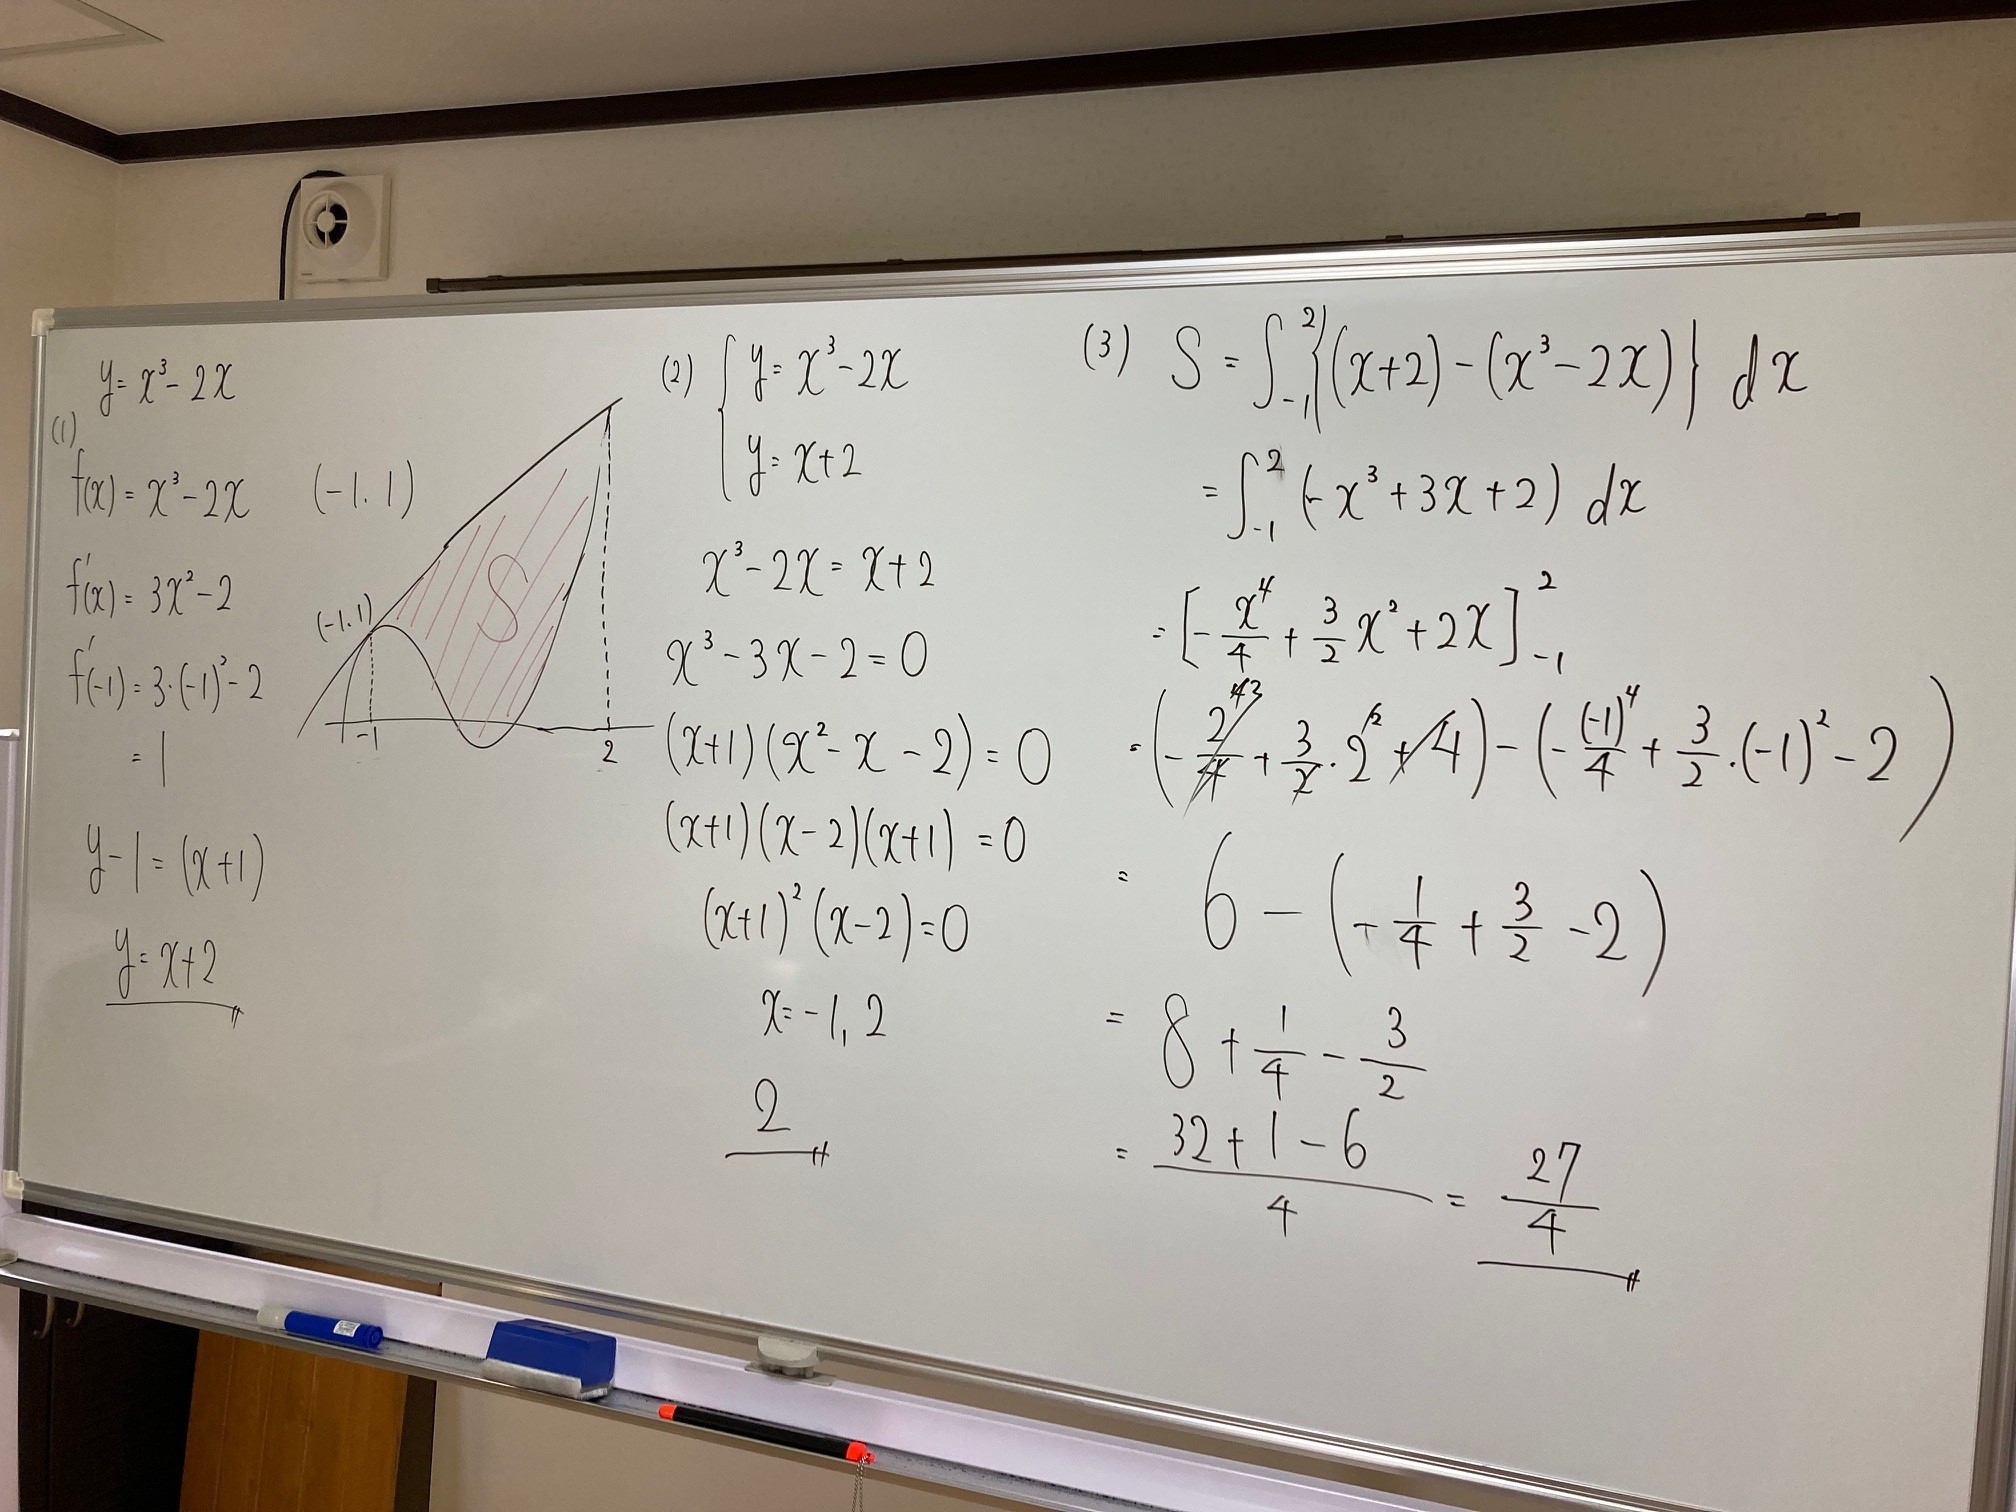 y = x³ - 2x
(1)
f(x) = x³ - 2x (-1.1)
f'(x) = 3x² - 2
f'(-1) = 3·(-1)² - 2
= 1
y - 1 = (x+1)
y = x+2
(-1.1)
S
-1 2
(2) { y = x³ - 2x
y = x+2
x³ - 2x = x+2
x³ - 3x - 2 = 0
(x+1)(x² - x - 2) = 0
(x+1)(x-2)(x+1) = 0
(x+1)²(x-2) = 0
x = -1, 2
2
(3) S = ∫_{-1}^{2} {(x+2) - (x³ - 2x)} dx
= ∫_{-1}^{2} (-x³ + 3x + 2) dx
= [-x⁴/4 + 3/2 x² + 2x]_{-1}^{2}
= (-2⁴/4 + 3/2 · 2² + 4) - (-(-1)⁴/4 + 3/2 · (-1)² - 2)
= 6 - (-1/4 + 3/2 - 2)
= 8 + 1/4 - 3/2
= (32 + 1 - 6)/4 = 27/4